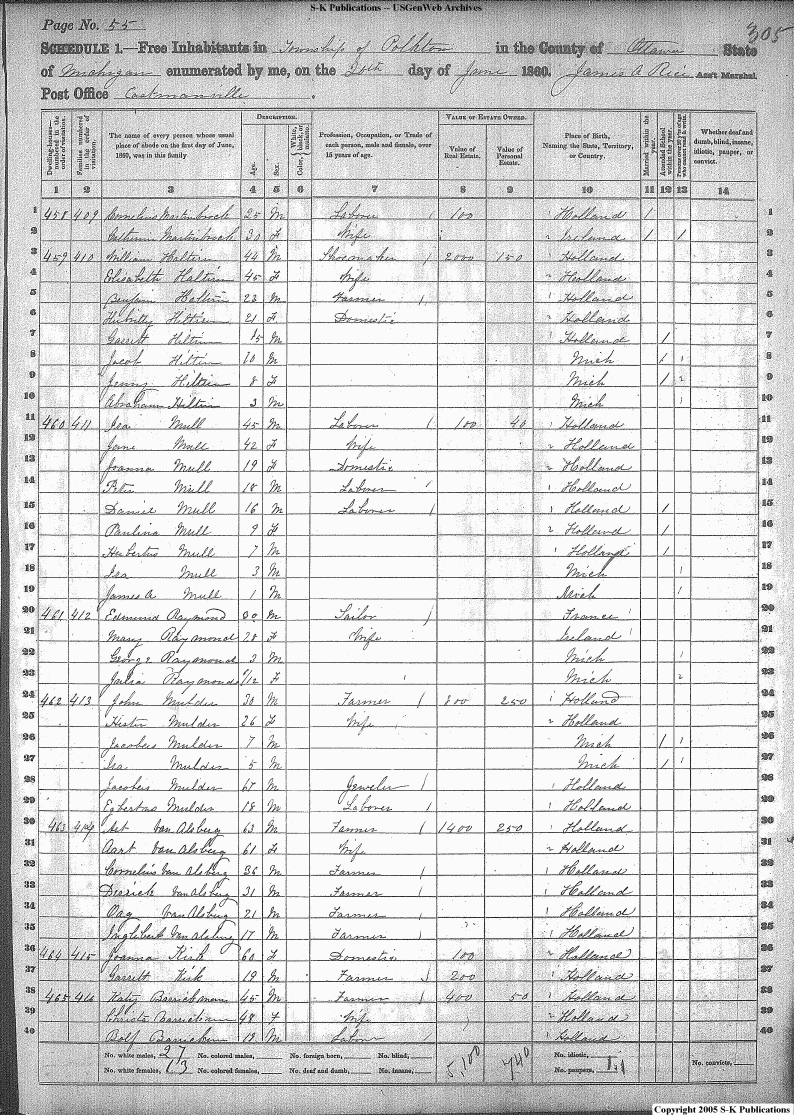 S-K Publications -- USGenWeb Archives
Page No. 55
305
SCHEDULE 1.—Free Inhabitants in Township of Polkton in the County of Ottawa State
of Michigan enumerated by me, on the 20th day of June 1860. James A Rice Ass't Marshal
Post Office Eastmanville.
Dwelling-houses—numbered in the order of visitation.
Families numbered in the order of visitation.
The name of every person whose usual place of abode on the first day of June, 1860, was in this family
DESCRIPTION.
Age.
Sex.
Color, White, black, or mulatto.
Profession, Occupation, or Trade of each person, male and female, over 15 years of age.
VALUE OF ESTATE OWNED.
Value of Real Estate.
Value of Personal Estate.
Place of Birth, Naming the State, Territory, or Country.
Married within the year.
Attended School within the year.
Whether deaf and dumb, blind, insane, idiotic, pauper, or convict.
1 2 3 4 5 6 7 8 9 10 11 12 13 14
1 458 409 Cornelius Martinbrock 25 M Laborer / 100 ' Holland / 1
2 Martinbrock 30 F Wife " Ireland / / 2
3 459 410 William Haltern 44 M Shoemaker / 2000 150 ' Holland 3
4 Elisabeth Haltern 45 F Wife " Holland 4
5 Benjam 23 M Farmer / ' Holland 5
6 21 F Domestic " Holland 6
7 Garrett Hiltern 15 M ' Holland / 7
8 Jacob Hiltern 10 M Mich / ' 8
9 Jenny Hiltern 8 F Mich / " 9
10 Abraham Hiltern 3 M Mich ' 10
11 460 411 Isa Mull 45 M Laborer / 100 40 ' Holland 11
12 Jane Mull 42 F Wife " Holland 12
13 Joanna Mull 19 F Domestic " Holland 13
14 Peter Mull 18 M Laborer / ' Holland 14
15 Daniel Mull 16 M Laborer / ' Holland / 15
16 Paulina Mull 9 F " Holland / 16
17 Hubertus Mull 7 M ' Holland / 17
18 Isa Mull 3 M Mich ' 18
19 James A Mull 1 M Mich ' 19
20 461 412 Edmund Raymond 30 M Sailor / France ' 20
21 Mary Raymond 28 F Wife Ireland ' 21
22 George Raymond 3 M Mich ' 22
23 Julia Raymond /12 F Mich " 23
24 462 413 John Mulder 30 M Farmer / 800 250 ' Holland 24
25 Hester Mulder 26 F Wife " Holland 25
26 Jacobus Mulder 7 M Mich / ' 26
27 Isa Mulder 5 M Mich / ' 27
28 Jacobus Mulder 67 M Jeweler / ' Holland 28
29 Egbertus Mulder 18 M Laborer / ' Holland 29
30 463 414 Art Van Alsberg 63 M Farmer / 1400 250 ' Holland 30
31 Aart Van Alsberg 61 F Wife " Holland 31
32 Cornelius Van Alsberg 36 M Farmer / ' Holland 32
33 Derrick Van Alsberg 31 M Farmer / ' Holland 33
34 Van Alsberg 21 M Farmer / ' Holland 34
35 Inglebert Van Alsberg 17 M Farmer / ' Holland 35
36 464 415 Joanna Kirk 60 F Domestic 100 " Holland 36
37 Garrett Kirk 19 M Farmer / 200 ' Holland 37
38 465 416 45 M Farmer / 400 50 ' Holland 38
39 48 F Wife " Holland 39
40 19 M Labour / ' Holland 40
No. white males, 27 No. colored males, No. foreign born, No. blind, 5,100 740 No. idiotic,
No. white females, 13 No. colored females, No. deaf and dumb, No. insane, No. paupers, No. convicts,
Copyright 2005 S-K Publications